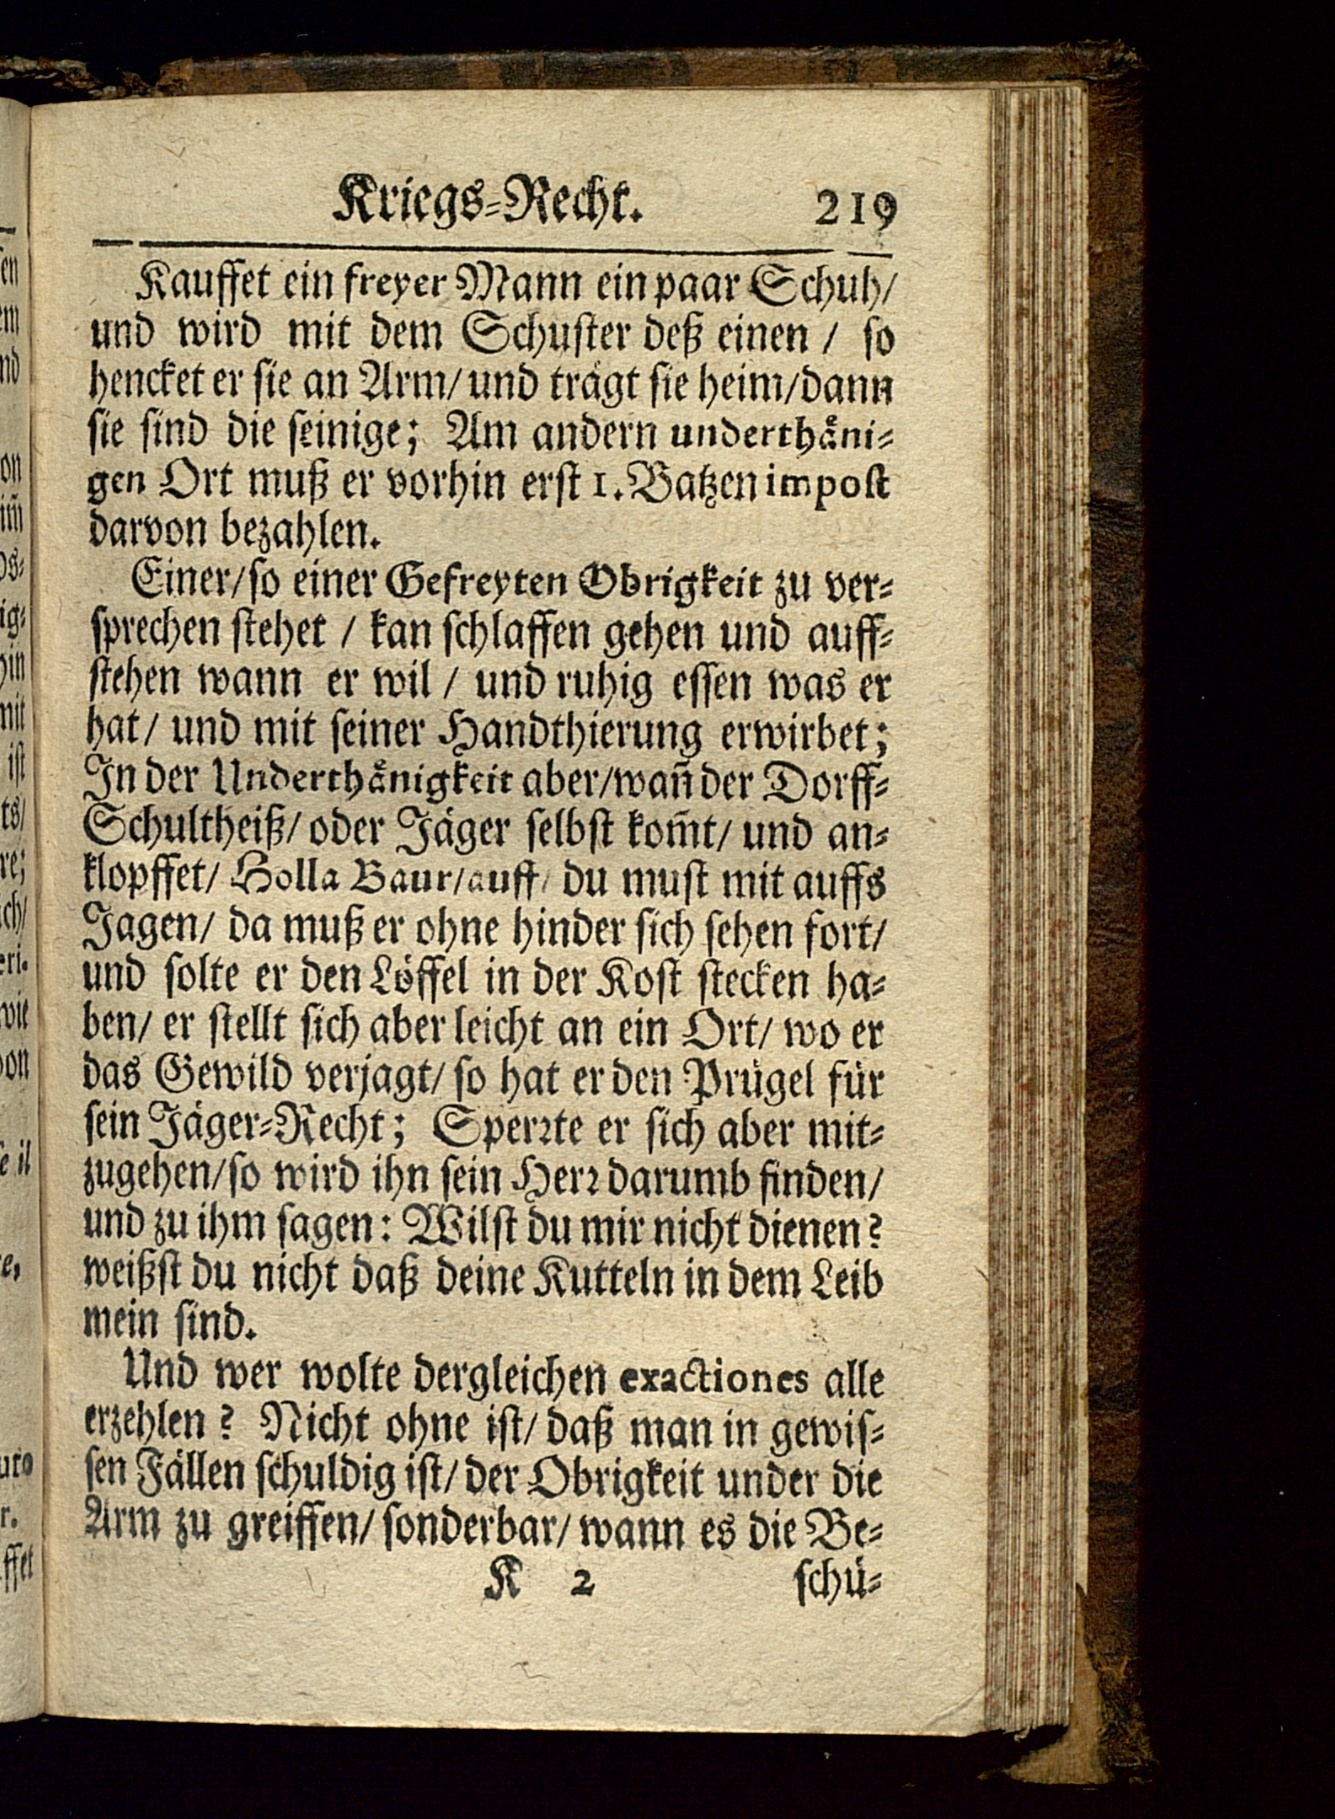 Kriegs-Recht. 219
Kauffet ein freyer Mann ein paar Schuh/
und wird mit dem Schuster deß einen / so
hencket er sie an Arm/ und trägt sie heim/dann
sie sind die seinige; Am andern underthäni-
gen Ort muß er vorhin erst 1. Batzen impost
darvon bezahlen.
Einer/so einer Gefreyten Obrigkeit zu ver-
sprechen stehet / kan schlaffen gehen und auff-
stehen wann er wil / und ruhig essen was er
hat/ und mit seiner Handthierung erwirbet;
In der Underthänigkeit aber/wañ der Dorff-
Schultheiß/ oder Jäger selbst kom̃t/ und an-
klopffet/ Holla Baur/auff/ du must mit auffs
Jagen/ da muß er ohne hinder sich sehen fort/
und solte er den Löffel in der Kost stecken ha-
ben/ er stellt sich aber leicht an ein Ort/ wo er
das Gewild verjagt/ so hat er den Prügel für
sein Jäger-Recht; Sperꝛte er sich aber mit-
zugehen/so wird ihn sein Herꝛ darumb finden/
und zu ihm sagen: Wilst du mir nicht dienen?
weißst du nicht daß deine Kutteln in dem Leib
mein sind.
Und wer wolte dergleichen exactiones alle
erzehlen? Nicht ohne ist/ daß man in gewis-
sen Fällen schuldig ist/ der Obrigkeit under die
Arm zu greiffen/ sonderbar/ wann es die Be-
K 2 schü-